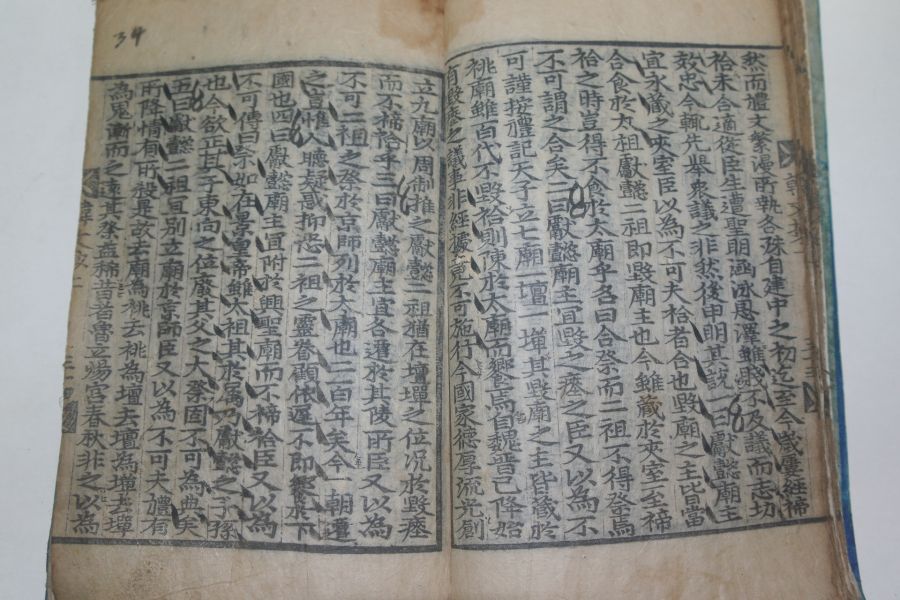 然而禮文繁漫所執各殊自建中之初迄至今歲屢經禘
祫未合適從臣生遭聖明涵泳恩澤雖賤不及議而志切
效忠今輒先舉衆議之非然後申明其說一曰獻懿廟主
宜永藏之夾室臣以為不可夫祫者合也毀廟之主皆當
合食於太祖獻懿二祖即毀廟主也今雖藏於夾室至禘
祫之時豈得不食於太廟乎名曰合祭而二祖不得祭焉
不可謂之合矣二曰獻懿廟主宜毀之瘞之臣又以為不
可謹按禮記天子立七廟一壇一墠其毀廟之主皆藏於
祧廟雖百代不毀祫則陳於太廟而饗焉自魏晉已降始
有毀瘞之議事非經據竟不可施行今國家德厚流光創
立九廟以周制推之獻懿二祖猶在壇墠之位況於毀瘞
而不禘祫乎三曰獻懿廟主宜各遷於其陵所臣又以為
不可二祖之祭於京師列於太廟也二百年矣今一朝遷
之豈惟人聽疑惑抑恐二祖之靈眷顧依遲不即饗於下
國也四曰獻懿廟主宜附於興聖廟而不禘祫臣又以為
不可傳曰祭如在景皇帝雖太祖其於屬乃獻懿之子孫
也今欲正其子東向之位廢其父之大祭固不可為典矣
五曰獻懿二祖宜別立廟於京師臣又以為不可夫禮有
所降情有所殺是故去廟為祧去祧為壇去壇為墠去墠
為鬼漸而之遠其祭益稀昔者魯立煬宮春秋非之以為
34